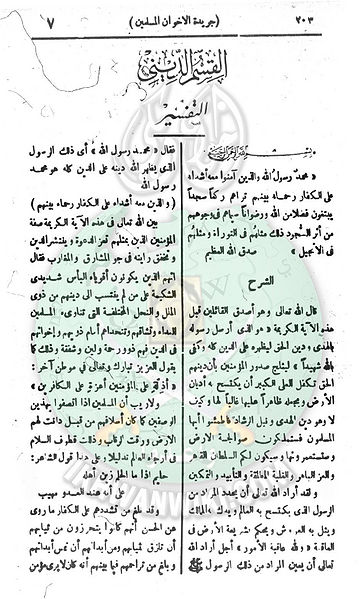 ٢٠٣
( جريدة الاخوان المسلمين )
٧
القسم الديني
التفسير
بسم الله الرحمن الرحيم
« محمد رسول الله والذين آمنوا معه أشداء
على الكفار رحماء بينهم تراهم ركعا سجدا
يبتغون فضلا من الله ورضوانا سيماهم في وجوههم
من أثر السجود ذلك مثلهم في التوراة ومثلهم
في الانجيل » صدق الله العظيم
الشرح
قال الله تعالى وهو أصدق القائلين قبل
هذه الآية الكريمة « هو الذى أرسل رسوله
بالهدى ودين الحق ليظهره على الدين كله وكفى
بالله شهيدا » ليثلج صدور المؤمنين بأن دينهم
الحق تكفل العلى الكبير أن يكتسح « أديان
الأرض ويجعله ظاهرا عليها غالبا لها وكيف
لا وهو دين الهدى ونيل الرشاد فاطمئنوا أيها
المسلمون فستملكون والجنة الارض
وستعمرونها وسيكون لكم السلطان القاهر
والعز الباهر والغلبة المالقة والتأييد والتمكين
و لقد أراد الله تعالى أن يحدد المراد من
الرسول الذى يكتسح به العالم ويدك الممالك
ويثل به العروش ويحكم بشريعته الأرض فى
العاقبة « ولله عاقبة الأمور » أجل أراد الله
تعالى أن يعين المراد من ذلك الرسول ﷺ
فقال « محمد رسول الله » أى ذلك الرسول
الذى يظهر الله دينه على الدين كله هو محمد
رسول الله
( والذين معه أشداء على الكفار رحماء بينهم )
بين الله تعالى فى هذه الآية الكريمة صفة
المؤمنين الذين بمثلهم تعز الدعوة وينتشر الدين
وتخفق رايته فى جو المشارق والمغارب فقال
انهم الذين يكونون أقوياء البأس شديدى
الشكيمة على من لم ينتسب الى دينهم من ذوى
الملل والنحل المختلفة التى تناوىء المسلمين
العداء وتشاقهم وتتحداهم أمام ذويهم وإخوانهم
فى الدين فهم ذوو رحمة ولين وشفقة وذلك كما
يقول العزيز تبارك وتعالى فى موطن آخر :
« أذلة على المؤمنين أعزة على الكافرين »
ولا ريب أن المسلمين اذا اتصفوا بهذين
الوصفين كما كان أسلافهم من قبل دانت لهم
الأرض ورقت لرؤيا وذلت قطوف السلام
فى أرجاء العالم تدليلا وعلى هذا قول الشاعر :
حليم اذا ما الحلم زين أهله
على أنه عند العدو مهيب
وقد بلغ من تشددهم على الكفار ما روى
عن الحسن أنهم كانوا يتحرزون من ثيابهم
أن تلزق بثيابهم ومن أبدانهم أن تمس أبدانهم
وبلغ من تراحمهم فيما بينهم أنه كان لا يرى مؤمن